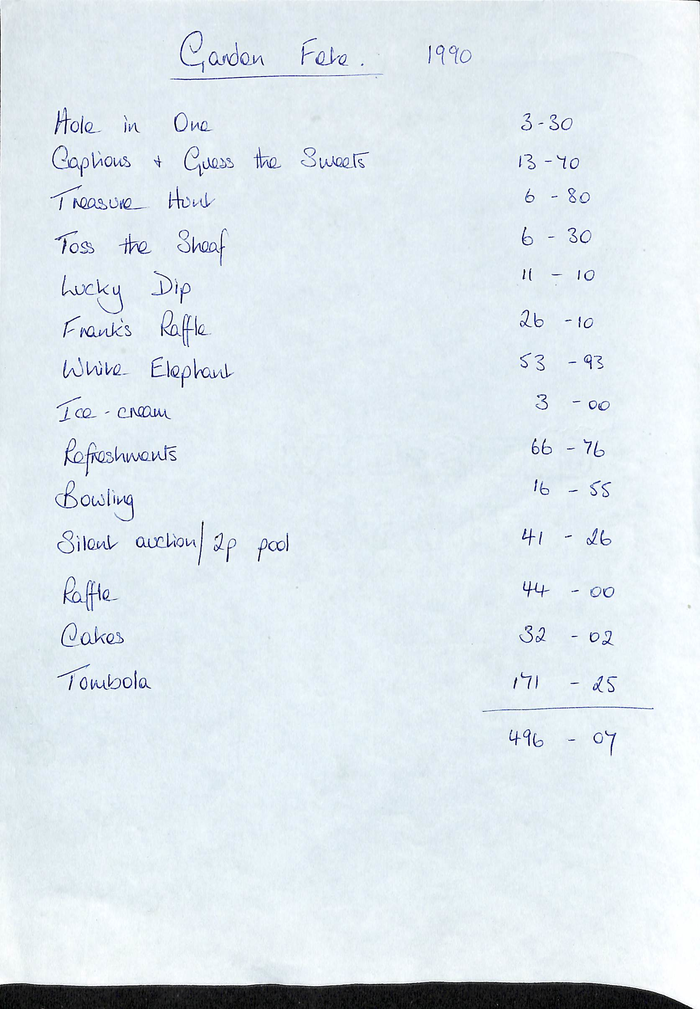 Garden Fete. 1990
Hole in One 3-30
Captions + Guess the Sweets 13-70
Treasure Hunt 6 - 80
Toss the Sheaf 6 - 30
Lucky Dip 11 - 10
Frank's Raffle 26 - 10
White Elephant 53 - 93
Ice-cream 3 - 00
Refreshments 66 - 76
Bowling 16 - 55
Silent auction/2p pool 41 - 26
Raffle 44 - 00
Cakes 32 - 02
Tombola 171 - 25
496 - 07